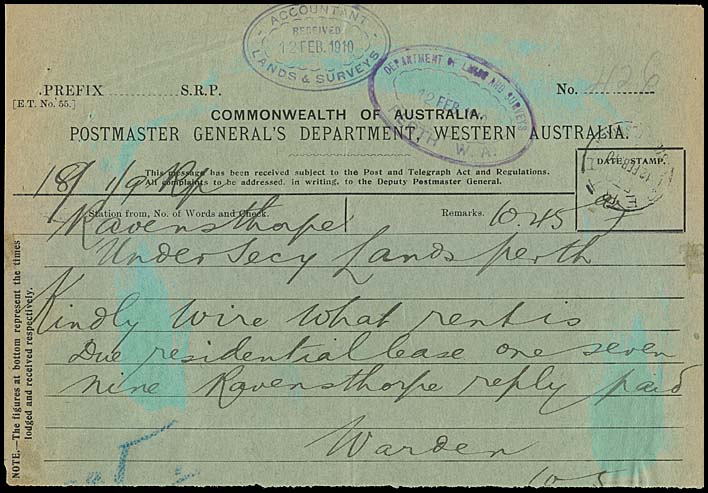 ACCOUNTANT
RECEIVED
12 FEB. 1910
LANDS & SURVEYS
DEPARTMENT OF LANDS AND SURVEYS
12 FEB
PERTH W.A.
PREFIX S.R.P. No. 426
[E.T. No. 55.]
COMMONWEALTH OF AUSTRALIA.
POSTMASTER GENERAL'S DEPARTMENT, WESTERN AUSTRALIA.
This message has been received subject to the Post and Telegraph Act and Regulations.
All complaints to be addressed, in writing, to the Deputy Postmaster General.
DATE STAMP.
18/ 1/9 Rp
Station from, No. of Words and Check. Remarks.
Ravensthorpe 10.45
Under Secy Lands Perth
Kindly wire what rent is
Due residential lease one seven
nine Ravensthorpe reply paid
Warden
10.5
NOTE.—The figures at bottom represent the times
lodged and received respectively.